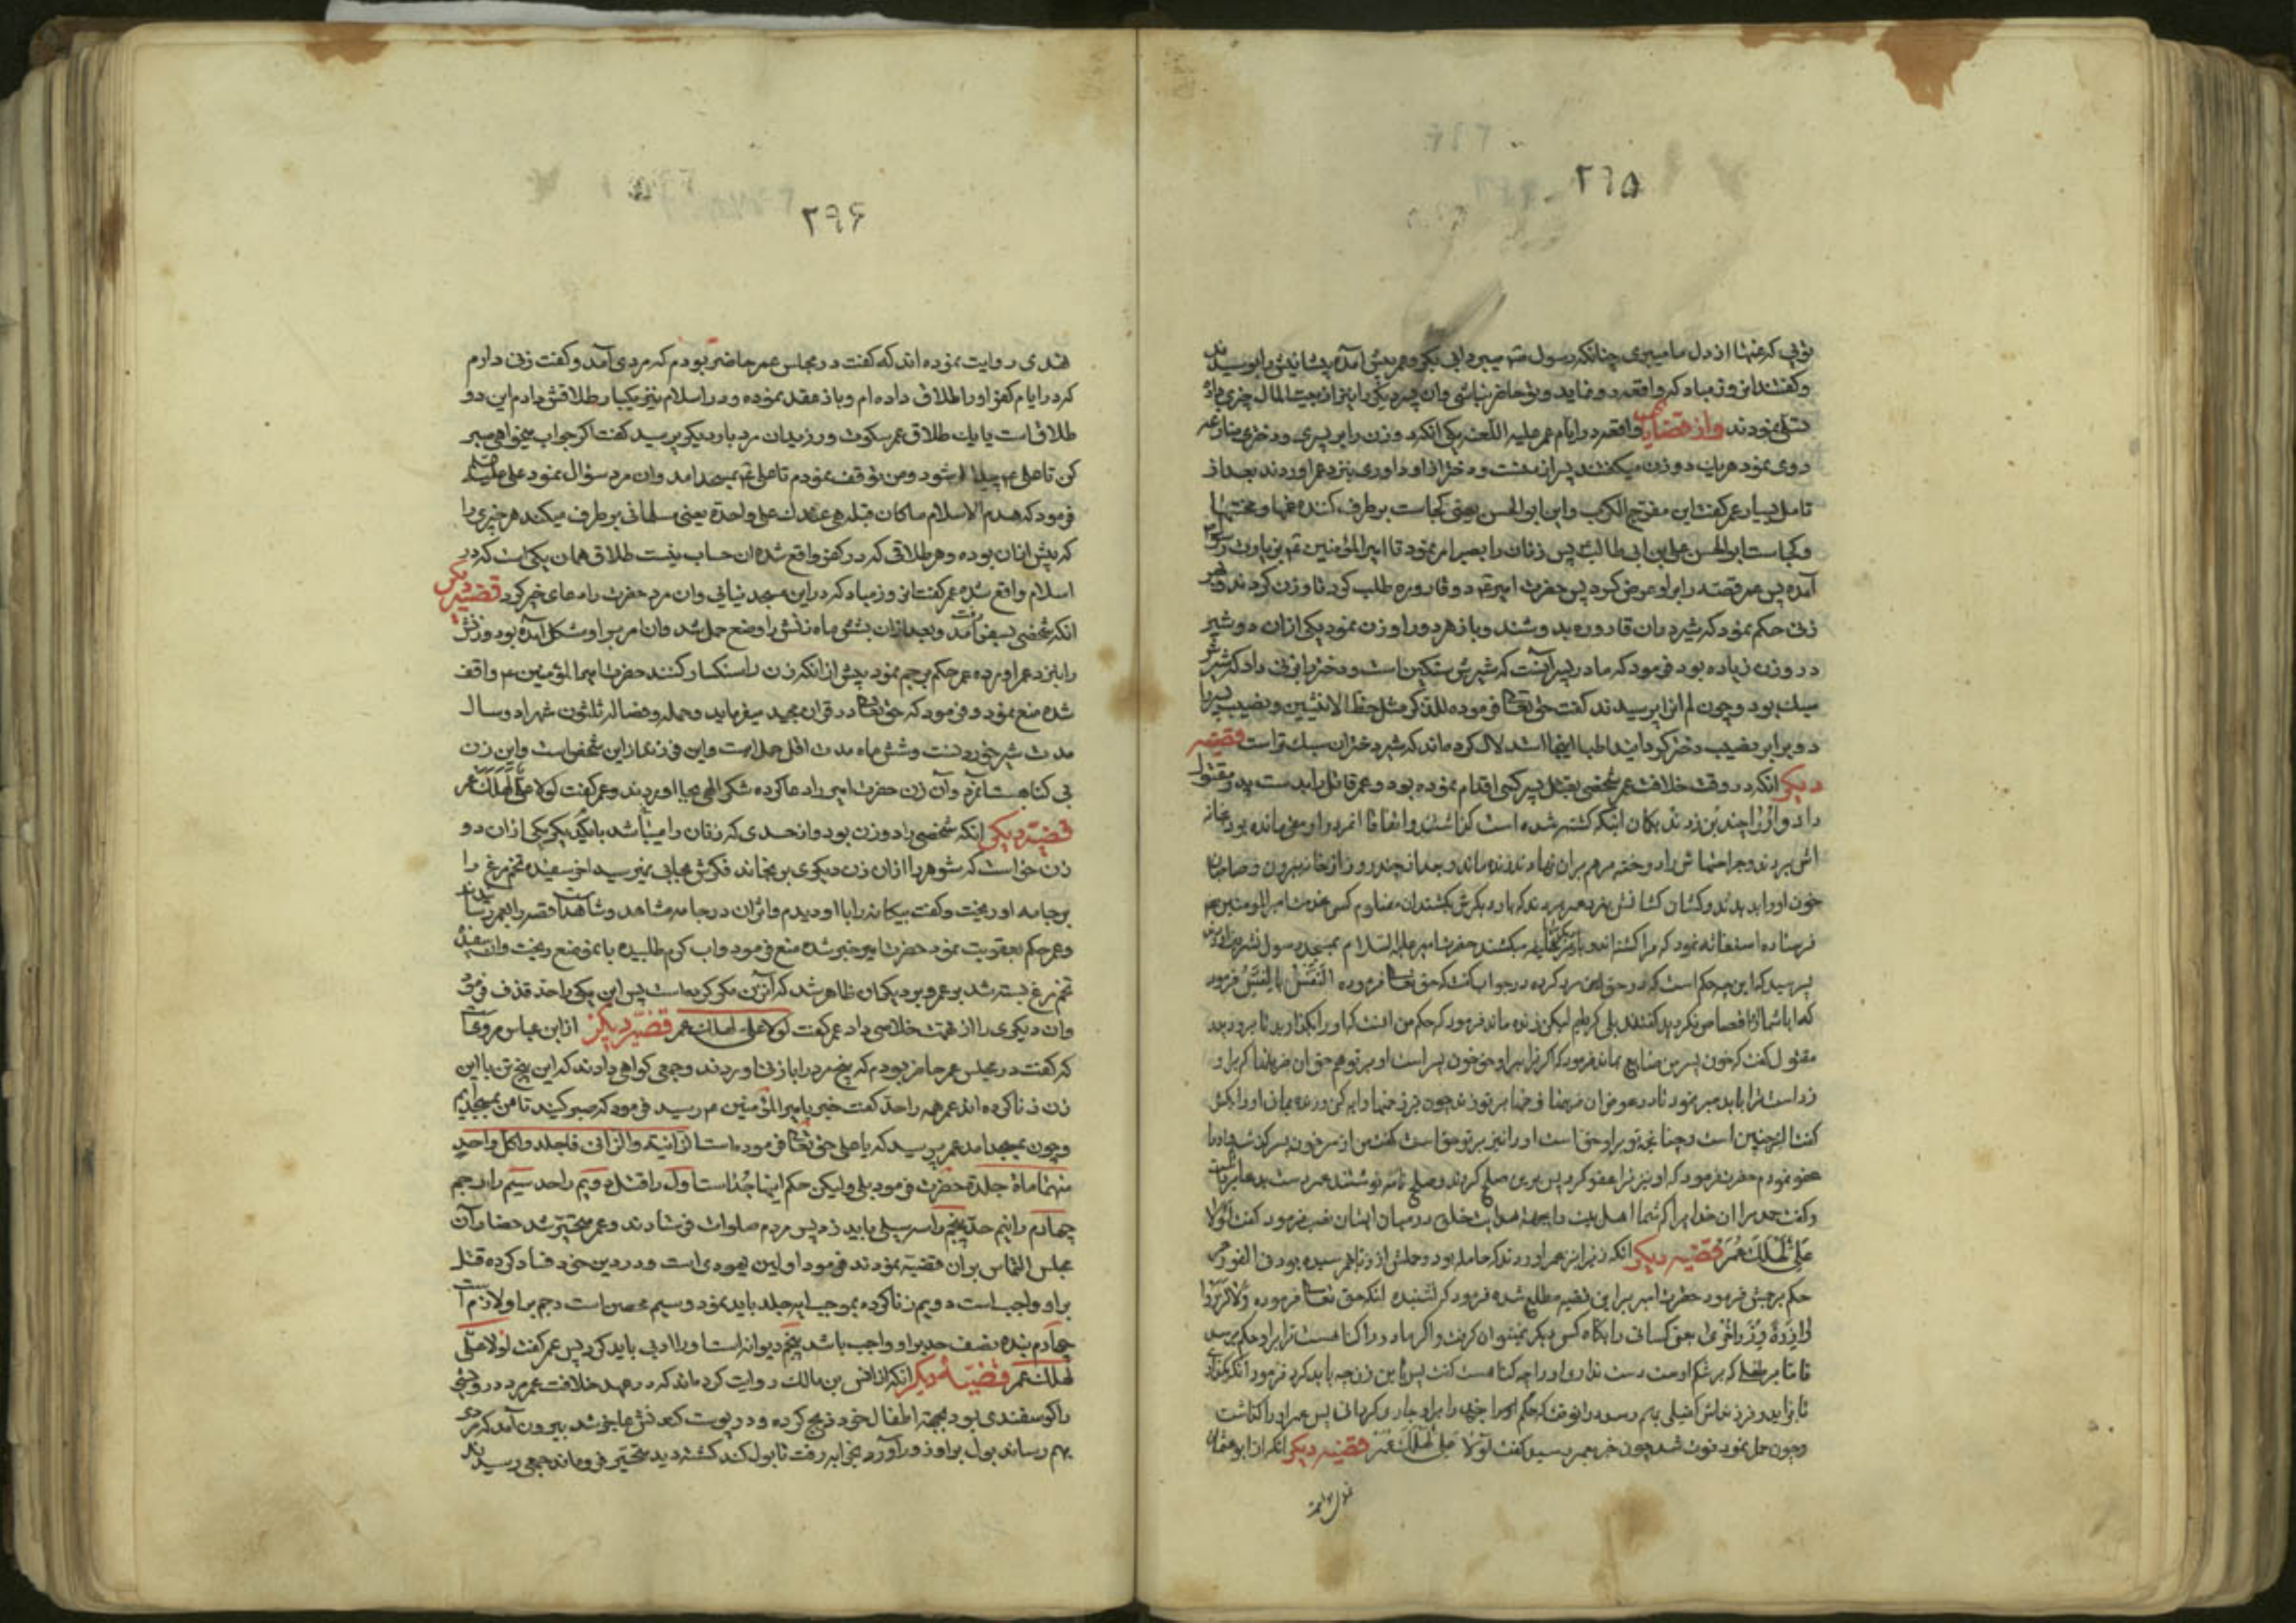 ۲۹۵
تویی که غمها از دل ما میبری چنانکه رسول میبرد ابی بکر و عمر پیش آمده پیشانیش را بوسیدند
وگفتند آن روز مباد که واقعه رو نماید و تو حاضر نباشی وان پیر دیگر را نیز از بیت المال چیزی داد
تسلی نمودند واز قضایا واقعه در ایام عمر علیه اللعنه یکی انکه دو زن را بر پسری و دختری منازعه
روی نمود هر یک دو زن میگفتند پسر از منست و دختر از او داوری بنزد عمر اوردند بعد از
تامل بسیار عمر گفت این مفرج الکرب واین ابو الحسن یعنی کجاست بر طرف کننده غمها و محنتها
وکجاست ابو الحسن علی بن ابی طالب پس زنان را امر نمود تا امیر المؤمنین
آمده پس عمر قصه را براو عرض کرد پس حضرت امیر دو قاروره طلب کرد تا وزن کردند و هر
زنی حکم نمود که شیر در ان قاروره بدوشند وباز هر دو را وزن نمود یکی از ان دو شیر
در وزن زیاده بود فرمود که مادر پسر آنست که شیرش سنگین است و دختر را بزنی داد که شیرش
سبک بود وچون لم انرا پرسیدند گفت حق تعا فرموده للذکر مثل حظ الانثیین و نصیب پسر را
دو برابر نصیب دختر گردانید اطبا اینجا استدلال کرده اند که شیر دختران سبک تر است قضیه
دیگر انکه در وقت خلافت عمر شخصی بقتل پسر کسی اقدام نموده بود و عمر قاتل را بدست پدر مقتول
داد و او را چند زدند بگمان اینکه کشته شده است گذاشتند و اتفاقا انمرد را رمقی مانده بود بخانه
اش بردند و جراحتهاش را دوخته مرهم بران نهادند زنده ماند و بعد از چند روز از خانه بیرون و صاحبان
خون اورا بدیدند و کشان کشانش بنزد عمر بردند که بار دیگرش بکشند ان مظلوم کس بخدمت امیر المومنین
فرستاده استغاثه نمود که مرا کشته اند و بار دیگر میکشند حضرت امیر علیه السلام بمسجد رسول تشریف
پرسید که این چه حکم است که در حق این مرد کرده در جواب گفت که حق تعا فرموده النفس بالنفس فرمود
که ایا شما او را قصاص نکردید گفتند بلی کردیم لیکن زنده ماند فرمود که حکم من انست که او را بگذارید تا برود پدر
مقتول گفت که خون پسر من ضایع بماند فرمود که اگر ترا بر او حق خون پسر است او بر تو هم حق ان ضربها که بر او
زده است ترا باید صبر نمود تا در عوض ان ضربها زخمها بر تو زند چون زخمها دوا کنی و زنده مانی او را بکش
گفت اگر چنین است و چنانچه تو بر او حق است او را نیز بر تو حق است گفت من از سر خون پسر گذشتم او را
عفو نمودم حضرت فرمود که او نیز ترا عفو کرد پس بدین صلح کردند و صلح نامه نوشتند عمر دست بدعا برداشت
وگفت حمد مر ان خدا را که شما اهل بیت را بجهة هدایت خلق در میان ایشان نصب فرمود گفت لولا
علی لهلک عمر قضیه دیگر انکه زنرا نزد عمر اوردند که حامله بود و حملش از زنا بهم رسیده بود فی الفور عمر
حکم برجمش فرمود حضرت امیر بر این قضیه مطلع شده فرمود که نشنیده انکه حق تعا فرموده ولا تزروا
وازرة وزر اخری بحق کسانی را بگناه کس دیگر نمیتوان گرفت و اگر مادر را گناهست ترا بر او حکم برسد
تا تا بر طفلی که بر شکم اوست دست ندارد او را چه گناهست گفت پس با این زن چه باید کرد فرمود انکه بگذاری
تا بزاید و فرزندش کفیلی بهم رسد در انوقت که حکم اورا خدا را براو جاری کرد انی پس عمر اورا گذاشت
وچون حمل نمود فوت شد چون خبر بعمر رسید گفت لولا علی لهلک عمر قضیه دیگر انکه از ابو عثمان
۲۹۶
هندی روایت نموده اند که گفت در مجلس عمر حاضر بودم که مردی آمد وگفت زنی دارم
که در ایام کفر او را طلاق داده ام و باز عقد نموده و در اسلام نیز یکبار طلاقش دادم این دو
طلاق است یا یک طلاق عمر سکوت ورزید ان مرد بار دیگر پرسید گفت اگر جواب میخواهی صبر
کن تا علی پیدا شود ومن توقف نمودم تا علی بمسجد امد وان مرد سؤال نمود علی علیه السلام
فرمود که هدم الاسلام ما کان قبله هی عندک علی واحدة یعنی مسلمانی بر طرف میکند هر چیزی را
که پیش از ان بوده و هر طلاقی که در کفر واقع شده ان حساب نیست طلاق همان یکی است که در
اسلام واقع شده عمر گفت آن روز مباد که در این مسجد نیایی وان مرد حضرت را دعای خیر کرد قضیه دیگر
انکه شخصی بسفر رفت آمد و بعد از ان بشش ماه زنش را وضع حمل شد وان امر بر او مشکل آمده بود و زنش
را بنزد عمر اورده عمر حکم برجم نمود پیش از انکه زن را سنگسار کنند حضرت امیر المؤمنین واقف
شده منع نمود و فرمود که حق تعا در قران مجید میفرماید وحمله و فصاله ثلثون شهرا دو سال
مدت شیر خوردنست وشش ماه مدت اقل حمل است واین فرزند از این شخص است واین زن
بی گناهست آنمرد وآن زن حضرت امیر را دعا کرده شکر الهی بجا اوردند و عمر گفت لولا علی لهلک عمر
قضیه دیگر انکه شخصی را دو زن بود واز حسدی که زنان را میباشد با یکدیگر یکی از ان دو
زن خواست که شوهر را از ان زن دیگری برنجاند فکرش بجایی نمیرسید اخر سفیده تخم مرغ را
بر جامه او ریخت وگفت بیگانه را با او دیدم واثر ان در جامه مشاهد وشاهد است قصه را بعمر رسانیدند
وعمر حکم بعقوبت نمود حضرت امیر خبر شده منع فرمود واب گرم طلبیده بانموضع ریخت وان سفیده
تخم مرغ بسته شد بر عمر و بر دیگران ظاهر شد که آن زن مکر کرده است پس این یکی را حد قذف فرمود
وان دیگری را از تهمت خلاصی داد عمر گفت لولا علی لهلک عمر قضیه دیگر از ابن عباس مرویست
که گفت در مجلس عمر حاضر بودم که پنج مرد را با زنی اوردند وجمعی گواهی دادند که این پنج تن با این
زن زنا کرده اند عمر همه را حد گفت خبر بامیر المؤمنین رسید فرمود که صبر کنید تا من بمسجد آیم
وچون بمسجد امد عمر پرسید که یا علی حق تعا فرموده است الزانیة والزانی فاجلدوا کل واحد
منهما مأة جلدة حضرت فرمود بلی ولیکن حکم اینها جداست اول را قتل دویم را حد سیم را رجم
چهارم را نیم حد پنجم را سر سیلی باید زد پس مردم صلوات فرستادند وعمر متحیر شد حضار آن
مجلس التماس بران قضیه نمودند فرمود اولین یهودی است و در دین خود فساد کرده قتل
براو واجب است دویم زنا کرده بموجب ایه جلد باید نمود وسیم محصن است رجم براو لازم است
چهارم بنده نصف حد براو واجب باشد پنجم دیوانه است اورا ادبی باید کرد پس عمر گفت لولا علی
لهلک عمر قضیه دیگر انکه از انس بن مالک روایت کرده اند که در عهد خلافت عمر مرد درویشی
را گوسفندی بود بجهة اطفال خود ذبح کرده و در پوست کندنش عاجز شد بیرون آمد که مردی
بهم رساند بول براو زور آورد بخرابه رفت تا بول کند کشته دید متحیر فرو ماند جمعی رسیدند